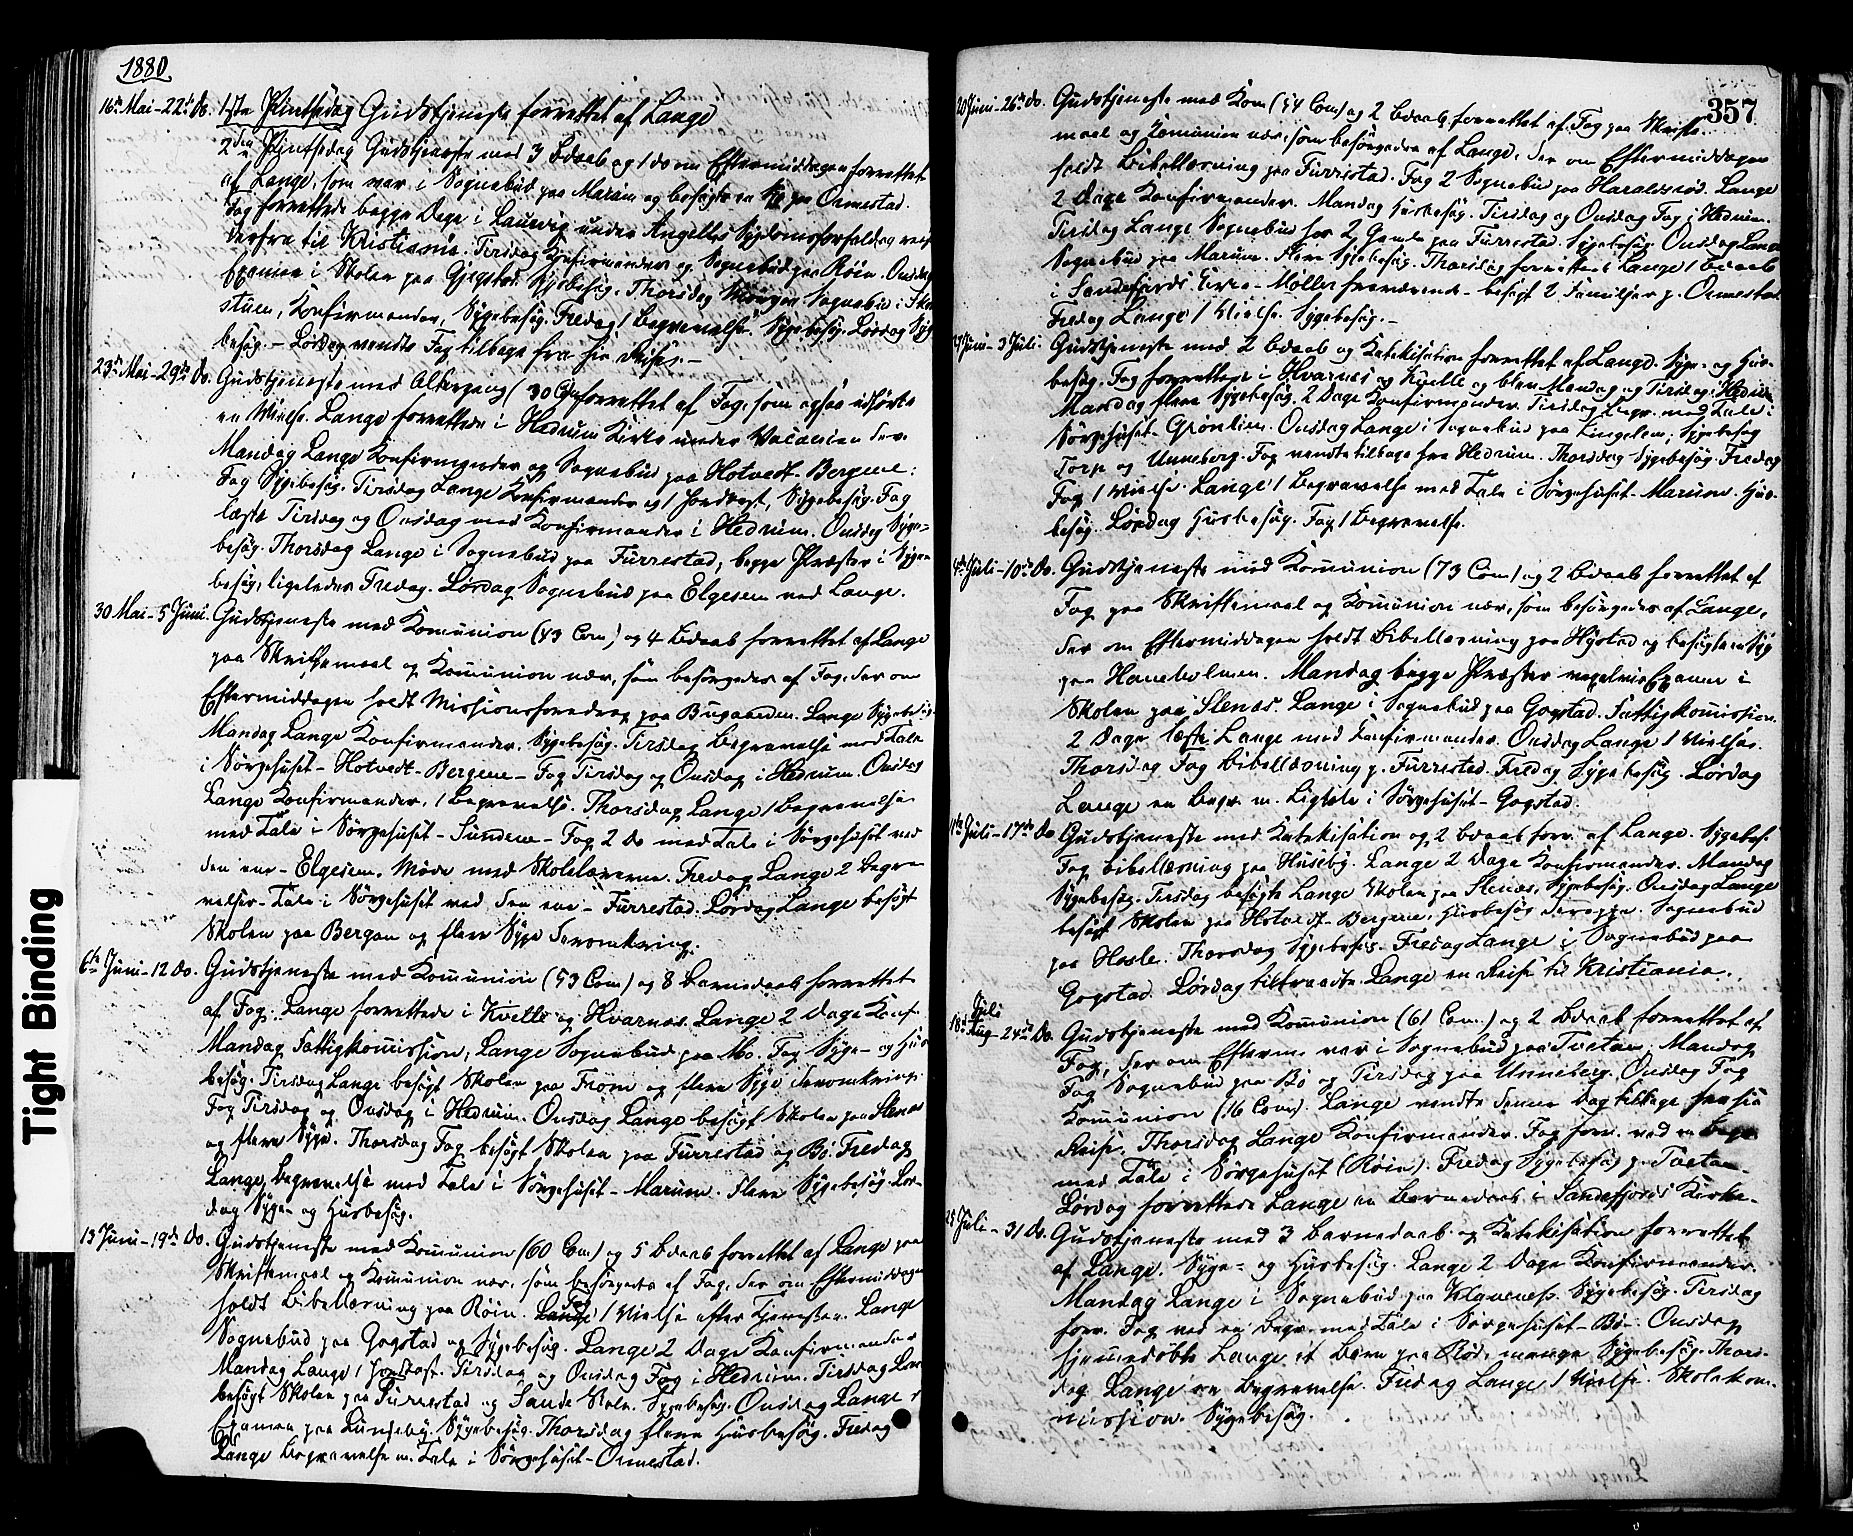 1880
16de Mai-22de Do. 1ste Pintsedag Gudstjeneste forrettet af Lange
2den Pintsedag Gudstjeneste med 3 Bdaab og 1 do om Eftermiddagen forrettet
af Lange, som var i Sognebud paa Marum og besøgte en Syg paa Ormestad.
Fog forrettede begge Dage i Laurvig under Angells Sygdomsforfald og rejste
derfra til Kristiania. Tirsdag Konfirmander og Sognebud paa Røin. Onsdag
Examen i Skolen paa Gjegstad. Sygebesøg. Thorsdag Morgen Sognebud i
Konfirmander, Sygebesøg. Fredag 1 Begravelse. Sygebesøg. Lørdag Syge-
besøg. – Lørdag vendte Fog tilbage fra sin Reise. –
23de Mai-29de Do. Gudstjeneste med Altergang (30 Com) forrettet af Fog, som ogsaa udførte
en Vielse. Lange forrettede i Hedrum Kirke under Vacancen der.
Mandag Lange Konfirmander og Sognebud paa Hotvedt-Bergene;
Fog Sygebesøg. Tirsdag Lange Konfirmander og 1 Jordfæst, Sygebesøg. Fog
læste Tirsdag og Onsdag med Konfirmander i Hedrum. Onsdag Syge-
besøg. Thorsdag Lange i Sognebud paa Furrestad, begge Præster i Syge-
besøg, ligeledes Fredag. Lørdag Sognebud paa Elgesem ved Lange.
30 Mai-5 Juni. Gudstjeneste med Komunion (43 Com) og 4 Bdaab forrettet af Lange
paa Skriftemaal og Komunion nær, som besørgedes af Fog, der om
Eftermiddagen holdt Missionsforedrag paa Bugaarden. Lange Sygebesøg.
Mandag Lange Konfirmander. Sygebesøg. Tirsdag Begravelse med Tale
i Sørgehuset-Hotvedt-Bergene-Fog Tirsdag og Onsdag i Hedrum. Onsdag
Lange Konfirmander, 1 Begravelse. Thorsdag Lange 1 Begravelse
med Tale i Sørgehuset-Sundene-Fog 2 Do med Tale i Sørgehuset ved
den ene-Elgesem. Møde med Skolelærerne. Fredag Lange 2 Begra
velser-Tale i Sørgehuset ved den ene-Furrestad. Lørdag Lange besøgt
Skolen paa Bergan og flere Syge deromkring.
6te Juni-12 Do. Gudstjeneste med Komunion (53 Com) og 8 Barnedaab forrettet
af Fog. Lange forrettede i Kvelle og Hvarnæs. Lange 2 Dage Konf.
Mandag Fattigkomission, Lange Sognebud paa Mo. Fog Syge- og Hus
besøg. Tirsdag Lange besøgt Skolen paa From og flere Syge deromkring.
Fog Tirsdag og Onsdag i Hedrum. Onsdag Lange besøgt Skolen paa Stenæs
og flere Syge. Thorsdag Fog besøgt Skolen paa Furrestad og Bø. Fredag
Lange, Begravelse med Tale i Sørgehuset-Marum. Flere Sygebesøg. Lør-
dag Syge- og Husbesøg.
13 Juni-19de Do. Gudstjeneste med Komunion (60 Com) og 5 Bdaab forrettet af Lange paa
Skriftemaal og Komunion nær, som besørgets af Fog, der om Eftermiddagen
holdt Bibellæsning paa Røin. Lange Fog 1 Vielse efter Tjenesten. Lange
Sognebud paa Gogstad og Sygebesøg. Lange 2 Dage Konfirmander
Mandag Lange 1 Jordfæst. Tirsdag og Onsdag Fog i Hedrum. Tirsdag Lange
besøgt Skolen paa Furrestad og Sande Skole. Sygebesøg. Onsdag Lange
Examen paa Lundeby. Sygebesøg. Thorsdag flere Husbesøg. Fredag
Lange Begravelse m. Tale i Sørgehuset-Ormestad.
357
20 Juni-26de Do. Gudstjeneste med Kom (54 Com) og 2 Bdaab forrettet af Fog paa Skrifte-
maal og Komunion nær, som besørgedes af Lange, der om Eftermiddagen
holdt Bibellæsning paa Furrestad. Fog 2 Sognebud paa Haraldsrød. Lange
2 Dage Konfirmander. Mandag Husbesøg. Tirsdag og Onsdag Fog i Hedrum.
Tirsdag Lange Sognebud hos 2 Gamle paa Furrestad. Sygebesøg. Onsdag Lange
Sognebud paa Marum. Flere Sygebesøg. Thorsdag forrettede Lange 1 Bdaab
i Sandefjords Kirke-Møller fraværende-besøgt 2 Familjer p. Ormestad
Fredag Lange 1 Vielse. Sygebesøg. –
27 Juni-3 Juli. Gudstjeneste med 2 Bdaab og Katekisation forrettet af Lange. Syge- og Hus-
besøg. Fog forrettede i Hvarnes og Kvelle og blev Mandag og Tirsdag i Hedrum
Mandag flere Sygebesøg. 2 Dage Konfirmander. Tirsdag Begr. med Tale i
Sørgehuset-Grønlien. Onsdag Lange i Sognebud paa Lingelem, Sygebesøg
Torp og Unneberg. Fog vendte tilbage fra Hedrum. Thorsdag Sygebesøg. Fredag
Fog 1 Vielse. Lange 1 Begravelse med Tale i Sørgehuset-Marum. Hus-
besøg. Lørdag Husbesøg. Fog 1 Begravelse.
4de Juli-10de Do. Gudstjeneste med Komunion (73 Com) og 2 Bdaab forrettet af
Fog paa Skriftemaal og Komunion nær, som besørgedes af Lange,
der om Eftermiddagen holdt Bibellæsning paa Hystad og besøgte en Syg
paa Haneholmen. Mandag begge Præster Examen i
Skolen paa Stenæs. Lange i Sognebud paa Gogstad. Fattigkomission.
2 Dage læste Lange med Konfirmander. Onsdag Lange 1 Vielse.
Thorsdag Fog Bibellæsning p. Furrestad. Fredag Sygebesøg. Lørdag
Lange en Begr. m. Ligtale i Sørgehuset-Gogstad.
11te Juli-17de Do Gudstjeneste med Katekisation og 2 Bdaab forr. af Lange. Sygebes.
Fog Bibellæsning paa Huseby. Lange 2 Dage Konfirmander. Mandag
Sygebesøg. Tirsdag besøgte Lange Skolen paa Stenæs, Sygebesøg. Onsdag Lange
besøgt Skolen paa Hotvedt-Bergene, Husbesøg deroppe. Sognebud
paa Hasle. Thorsdag Sygebesøg. Fredag Lange i Sognebud paa
Gogstad. Lørdag tiltraadte Lange en Reise til Kristiania.
Juli
18de Aug-24de Do. Gudstjeneste med Komunion (61 Com.) og 2 Bdaab forrettet af
Fog, der om Efterm. var i Sognebud paa Tveten. Mandag
Fog Sognebud paa Bø og Tirsdag paa Unneberg. Onsdag Fog
Komunion (16 Com). Lange vendte denne Dag tilbage fra sin
Reise. Thorsdag Lange Konfirmander. Fog forr. ved en Begr.
med Tale i Sørgehuset (Røin). Fredag Sygebesøg p. Tveten-
Lørdag forrettede Lange en Barnedaab i Sandefjords Kirke-
25 Juli-31 Do. Gudstjeneste med 3 Barnedaab og Katekisation forrettet
af Lange. Syge- og Husbesøg. Lange 2 Dage Konfirmander.
Mandag Lange i Sognebud paa Klavenæs. Sygebesøg. Tirsdag
forr. Fog ved en Begr. med Tale i Sørgehuset-Bø-. Onsdag
hjemmedøbte Lange et Barn paa Rød, mange Sygebesøg. Thors-
dag Lange en Begravelse. Fredag Lange 1 Vielse. Skolekom-
mission. Sygebesøg.
Tight Binding